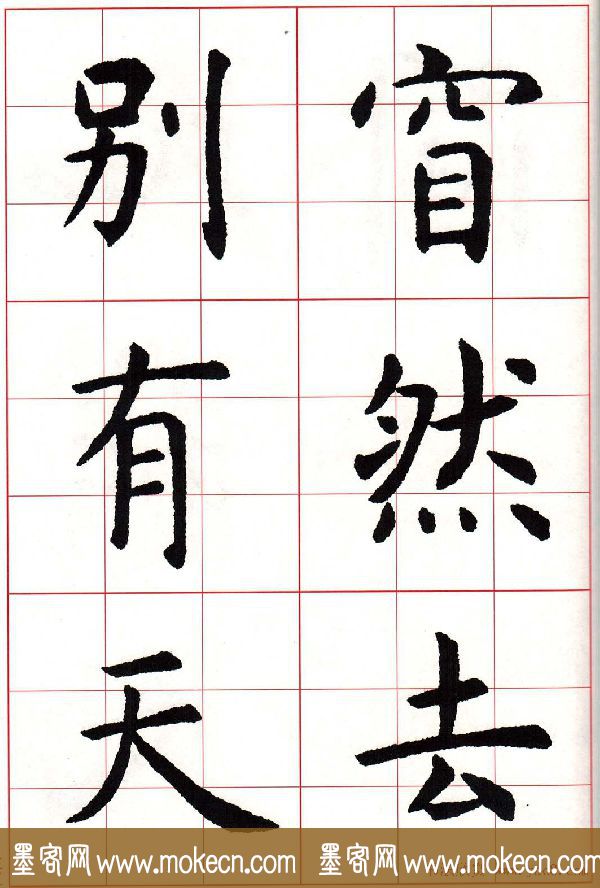 窅然去
别有天
墨客网 www.mokecn.com 墨客网 www.mokecn.com